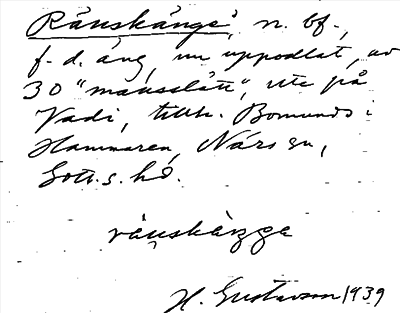 Ränskänge, n. bf.,
f. d. äng, nu uppodlat, av
30 "manslätt", ute på
Vadi, tillh. Bomunds i
Hammaren, När sn,
Gotl. s. hd.
ränskänge
H. Gustavson 1939